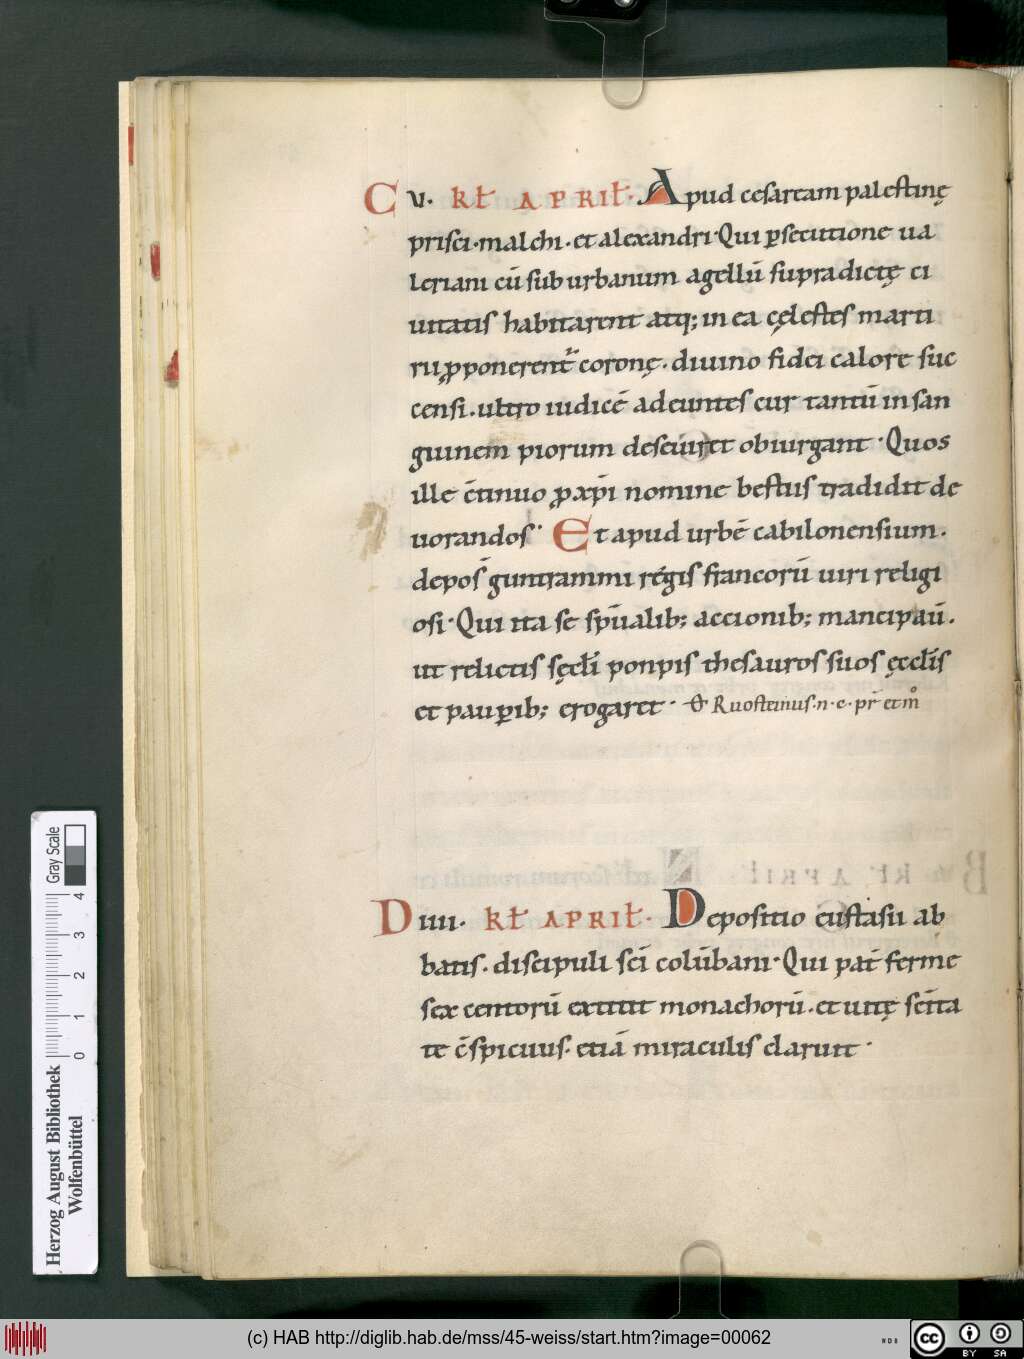 C v. kł APRIł. Apud cesaream palestinę
prisci. malchi. et alexandri. Qui ꝑsecutione ua
leriani cū suburbanum agellū supradictę ci
uitatis habitarent atq; in ea cęlestes marti
rii ꝓponerent᷑ coronę. diuino fidei calore suc
censi. ultro iudicē adeuntes cur tantū in san
guinem piorum deseuiret obiurgant. Quos
ille c̄tinuo ꝓ xp̄i nomine bestiis tradidit de
uorandos. Et apud urbē cabilonensium.
depos̄ guntrammi regis francorū uiri religi
osi. Qui ita se sp̄ualib; accionib; mancipauī.
ut relictis sęcłi ponpis thesauros suos ęccłis
et pauꝑib; erogaret. Ruosteinus. n. c. pr̄ et mͦ
D iiii. kł APRIł. Depositio eustasii ab
batis. discipuli sc̄i colūbani. Qui pat̄ ferme
sex centorū extitit monachorū. et uitę sc̄ita
te c̄spicuus. etiā miraculis claruit.
Herzog August Bibliothek
Wolfenbüttel
0 1 2 3 4
Gray Scale
(c) HAB http://diglib.hab.de/mss/45-weiss/start.htm?image=00062
WDB
cc BY SA